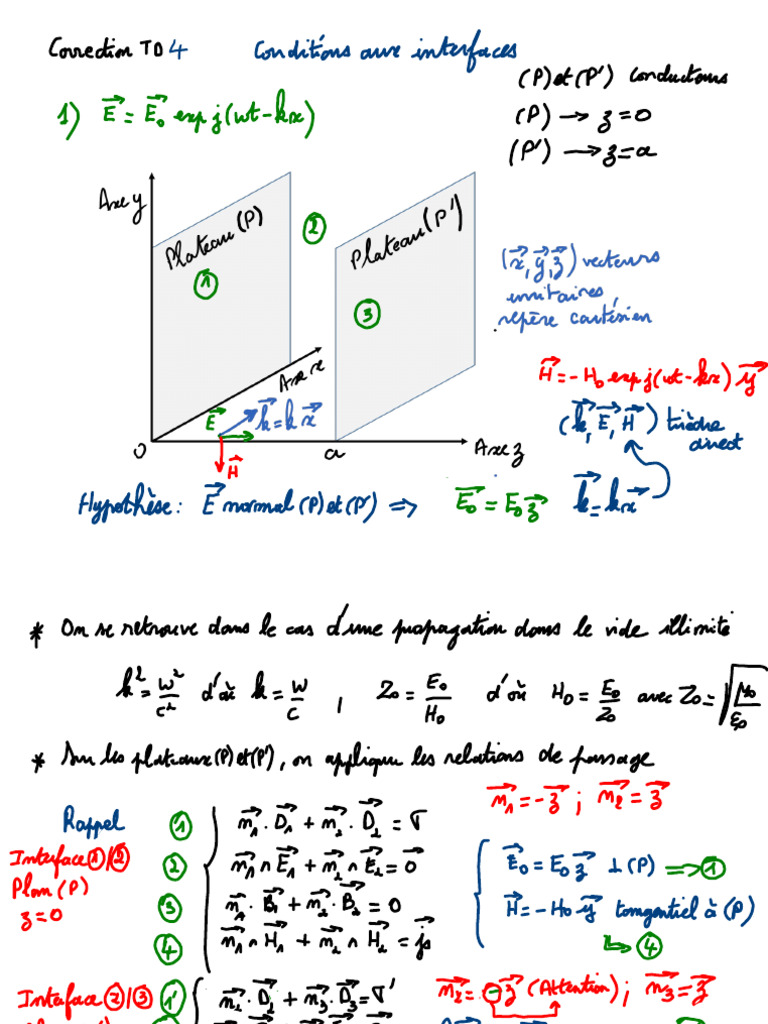 Correction TD 4 Conditions aux interfaces
(P) et (P') conducteurs
1) E⃗ = E⃗₀ exp j(ωt - kx)
(P) → z = 0
(P') → z = a
Axe y
Plateau (P)
②
Plateau (P')
①
③
(x⃗, y⃗, z⃗) vecteurs
unitaires,
repère cartésien
Axe x
H⃗ = -H₀ exp j(ωt - kx) y⃗
E⃗
k⃗ = k x⃗
(k⃗, E⃗, H⃗) trièdre
direct
O
a
Axe z
H⃗
k⃗ = k x⃗
Hypothèse : E⃗ normal (P) et (P') => E⃗₀ = E₀ z⃗
* On se retrouve dans le cas d'une propagation dans le vide illimité
k² = ω²/c² d'où k = ω/c , Z₀ = E₀/H₀ d'où H₀ = E₀/Z₀ avec Z₀ = √(μ₀/ε₀)
* Sur les plateaux (P) et (P'), on applique les relations de passage
n⃗₁ = -z⃗ ; n⃗₂ = z⃗
Rappel
Interface ①/②
Plan (P)
z = 0
① n⃗₁ . D⃗₁ + n⃗₂ . D⃗₂ = σ
② n⃗₁ ∧ E⃗₁ + n⃗₂ ∧ E⃗₂ = 0⃗
③ n⃗₁ . B⃗₁ + n⃗₂ . B⃗₂ = 0
④ n⃗₁ ∧ H⃗₁ + n⃗₂ ∧ H⃗₂ = j⃗s
E⃗₀ = E₀ z⃗ ⊥ (P) => ①
H⃗ = -H₀ y⃗ tangentiel à (P)
↳ ④
Interface ②/③ ①' n⃗₂ . D⃗₂ + n⃗₃ . D⃗₃ = σ'
n⃗₂ = -z⃗ (Attention) ; n⃗₃ = z⃗